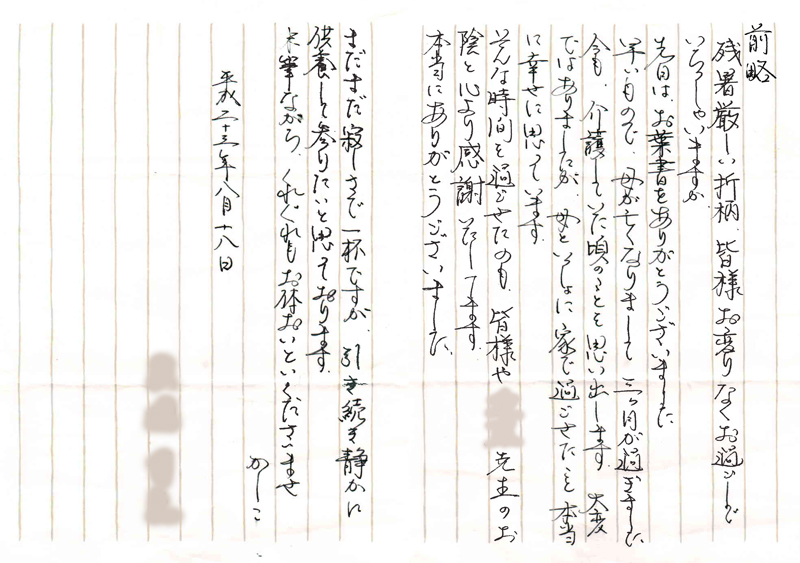 前略
残暑厳しい折柄、皆様お変りなくお過ごしで
いらっしゃいますか
先日は、お葉書をありがとうございました
早いもので、母が亡くなりまして三ヶ月が過ぎました
今も、介護していた頃のことを思い出します。大変
ではありましたが、母といっしょに家で過ごせたことを本当
に幸せに思っています。
そんな時間を過ごせたのも、皆様や
先生のお
陰と心より感謝いたしてます。
本当にありがとうございました。
まだまだ寂しさで一杯ですが、引き続き静かに
供養して参りたいと思っております。
末筆ながら、くれぐれもお体おいといくださいませ
かしこ
平成二十三年八月十八日